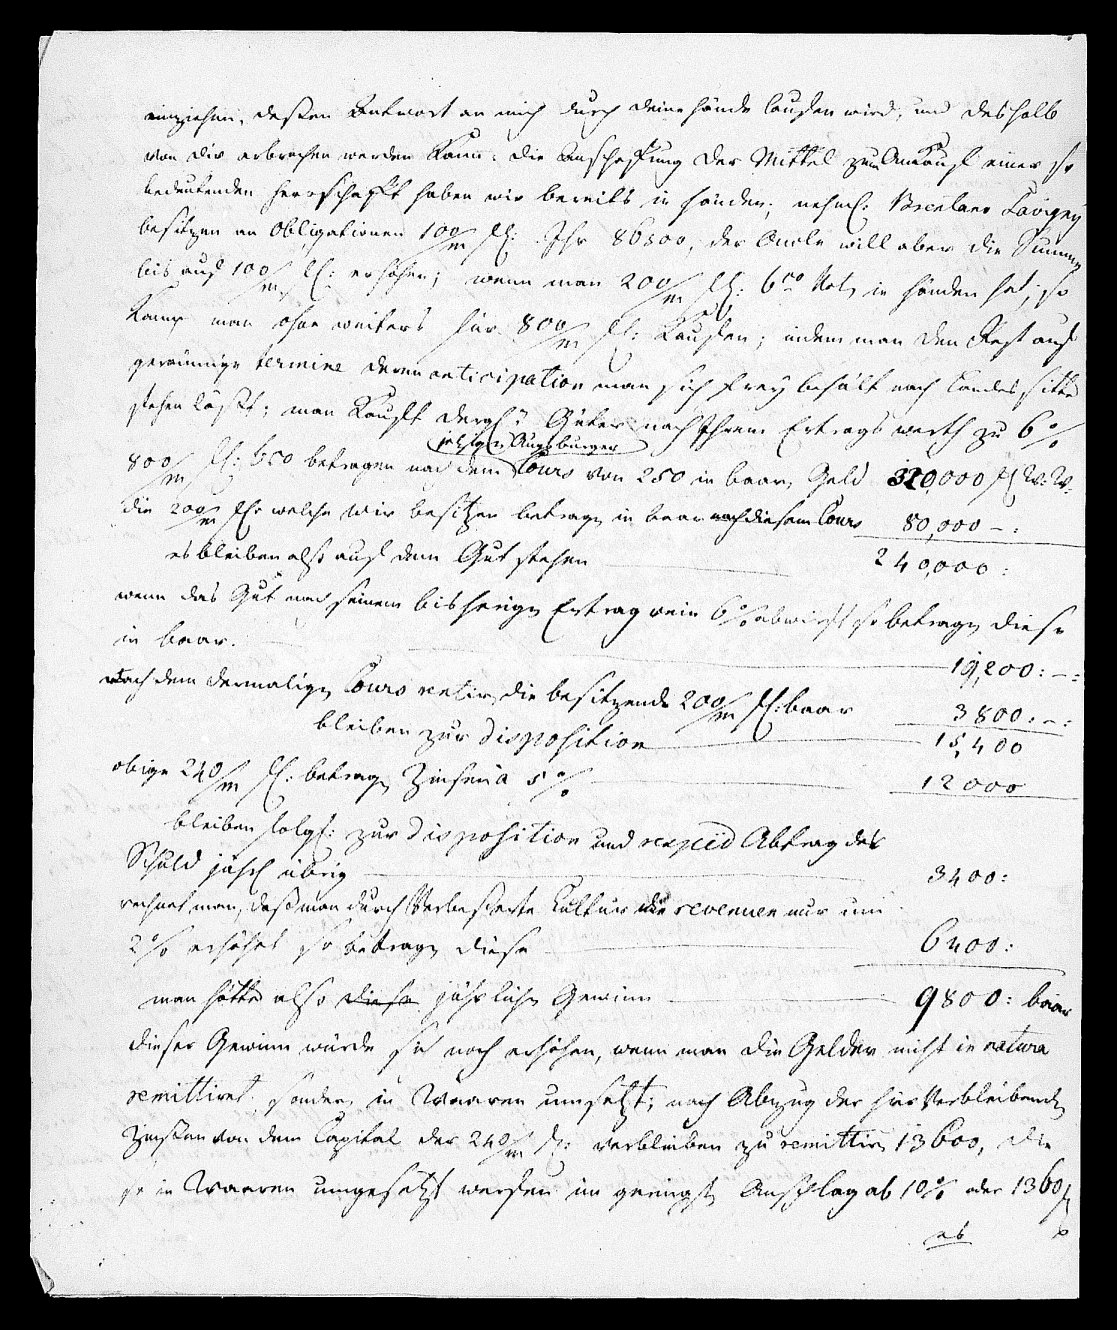 einziehen, dessen Antwort an mich durch deine Hände laufen wird, und deshalb
von dir erbrochen werden kann: die Anschaffung der Mittel zum Ankauf einer so
bedeutenden Herrschafft haben wir bereits in Händen; nehml:
besitzen an Obligationen 100/m fl: Ihr 86300, der Onole will aber die Summe
bis auf 100/m fl: erhöhen; wenn man 200/m fl: in Händen hat, so
kann man ohne weiters für 800/m fl: kaufen; indem man den Rest auf
geräumige termine deren anticipation man sich frey behält nach Landes sitte
stehen läßt; man kauft dergl: Güter nach Ihrem Ertrags werth zu 6%
jetzigen Augsburger
800/m fl: betragen nach dem Cours von 250 in baar Geld 320,000 fl W: W:
die 200/m fl: welche wir besitzen betragen in baar nach diesem Cours 80,000 - :
es bleiben also auf dem Gut stehen 240,000 :
wenn das Gut nach seinem bisherigen Ertrag rein 6% abwirft so betragen diese
in baar. 19,200: - :
Nach dem dermaligen Cours die besitzende 200/m fl: baar 3800: - :
bleiben zur disposition 15,400
obige 240/m fl: betragen Zinsen à 5% 12000
bleiben folgl: zur disposition und Abtrag der
Schuld jährl übrig 3400:
rechnet man, daß man durch Verbesserte Cultur die revenuen nur um
2% erhöhet so betragen diese 6400:
man hätte also diese jährlichen Gewinn 9800: baar
dieser Gewinn würde sich noch erhöhen, wenn man die Gelder nicht in natura
remittiret sondern in Waaren umsetzt; nach Abzug der hier Verbleibenden
Zinsen von dem Capital der 240/m fl: verbleiben zu remittiren 13600, die
so in Waaren umgesetzt werden im geringst Anschlag ab 10% oder 1360 fl
ab